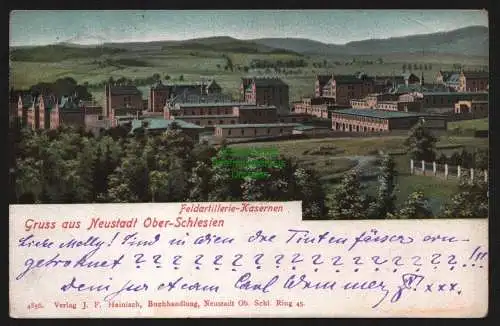 Feldartillerie-Kasernen
Gruss aus Neustadt Ober-Schlesien
Liebe Molly! Sind in dien die Tintenfässer ein-
getrocknet ? ? ? ? ? ? ? ? ? ? ? ? ? !!!
dein Carl
4856. Verlag J. F. Heinisch, Buchhandlung, Neustadt Ob. Schl. Ring 45.